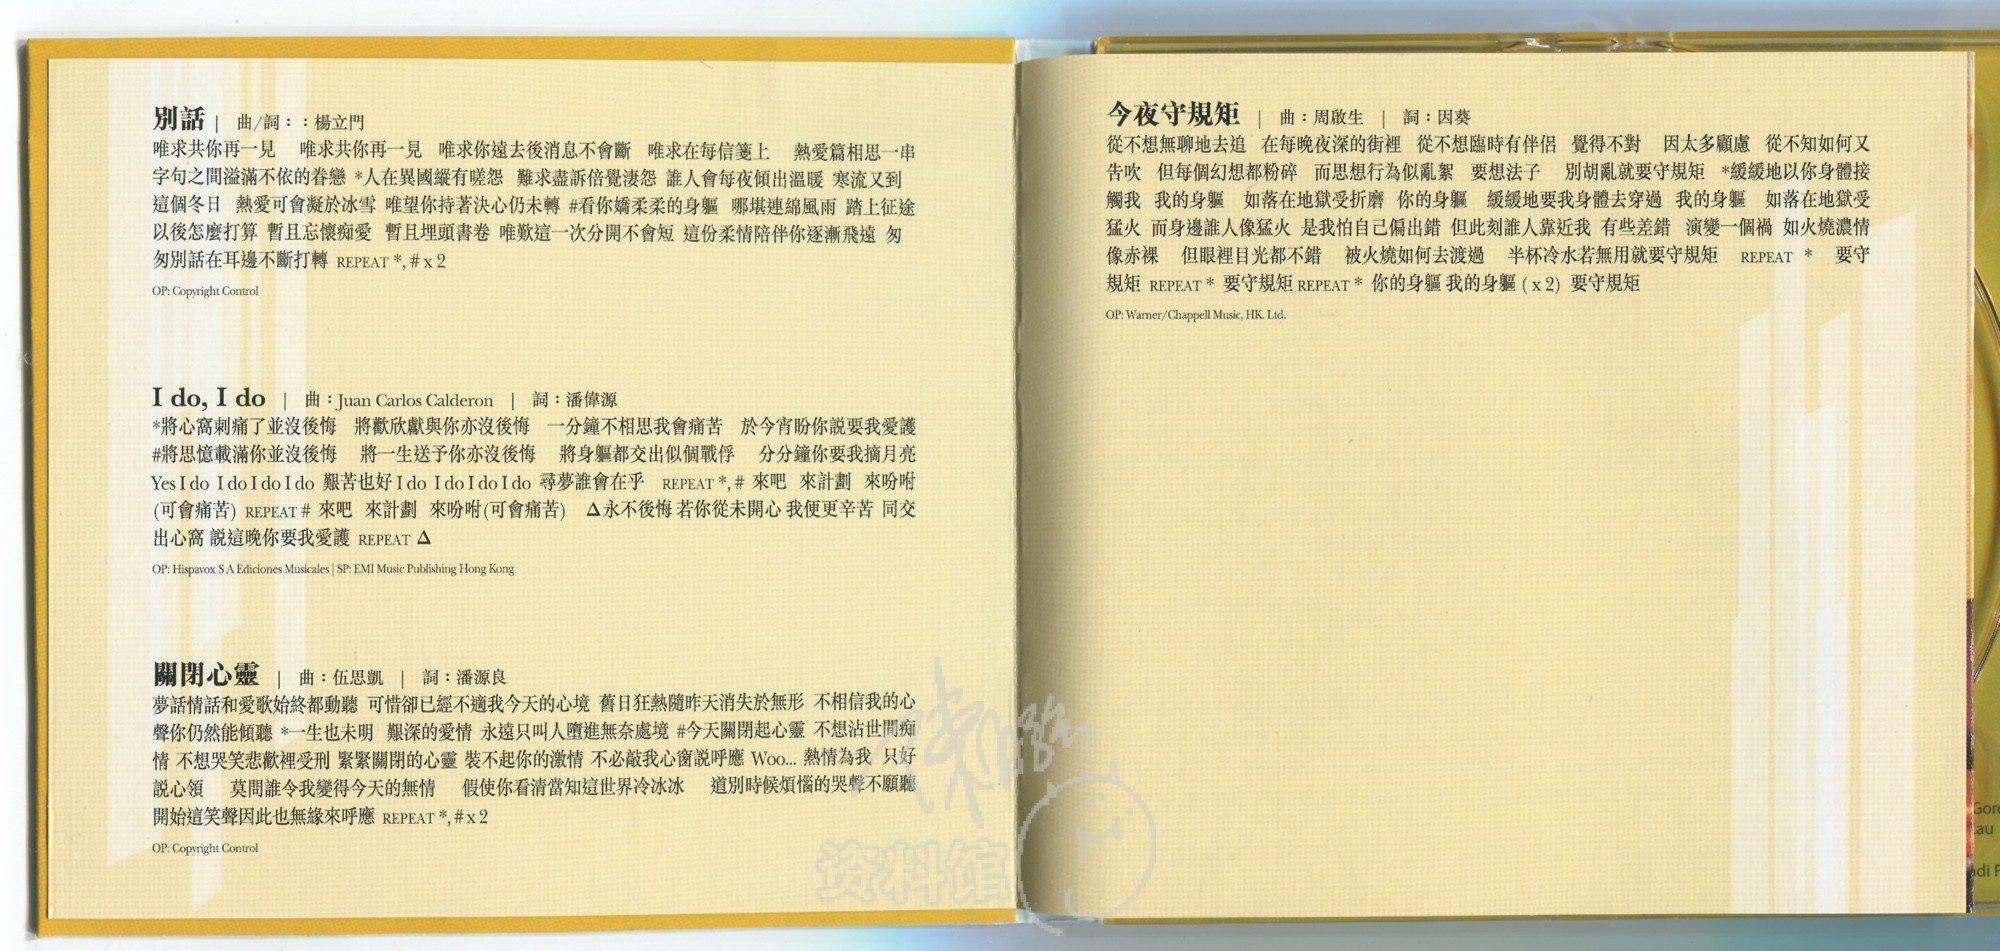 別話 | 曲/詞：：楊立門
唯求共你再一見 唯求共你再一見 唯求你遠去後消息不會斷 唯求在每信箋上 熱愛篇相思一串
字句之間溢滿不依的眷戀 *人在異國縱有嗟怨 難求盡訴倍覺淒怨 誰人會每夜傾出溫暖 寒流又到
這個冬日 熱愛可會凝於冰雪 唯望你持著決心仍未轉 #看你嬌柔柔的身軀 哪堪連綿風雨 踏上征途
以後怎麼打算 暫且忘懷痴愛 暫且埋頭書卷 唯歎這一次分開不會短 這份柔情陪伴你逐漸飛遠 匆
匆別話在耳邊不斷打轉 REPEAT *, # x 2
OP: Copyright Control
I do, I do | 曲：Juan Carlos Calderon | 詞：潘偉源
*將心窩刺痛了並沒後悔 將歡欣獻與你亦沒後悔 一分鐘不相思我會痛苦 於今宵盼你説要我愛護
#將思憶載滿你並沒後悔 將一生送予你亦沒後悔 將身軀都交出似個戰俘 分分鐘你要我摘月亮
Yes I do I do I do I do 艱苦也好 I do I do I do I do 尋夢誰會在乎 REPEAT *, # 來吧 來計劃 來吩咐
(可會痛苦) REPEAT # 來吧 來計劃 來吩咐(可會痛苦) Δ永不後悔 若你從未開心 我便更辛苦 同交
出心窩 説這晚你要我愛護 REPEAT Δ
OP: Hispavox S A Ediciones Musicales | SP: EMI Music Publishing Hong Kong
關閉心靈 | 曲：伍思凱 | 詞：潘源良
夢話情話和愛歌始終都動聽 可惜卻已經不適我今天的心境 舊日狂熱隨昨天消失於無形 不相信我的心
聲你仍然能傾聽 *一生也未明 艱深的愛情 永遠只叫人墮進無奈處境 #今天關閉起心靈 不想沾世間痴
情 不想哭笑悲歡裡受刑 緊緊關閉的心靈 裝不起你的激情 不必敲我心窗説呼應 Woo... 熱情為我 只好
説心領 莫問誰令我變得今天的無情 假使你看清當知這世界冷冰冰 道別時候煩惱的哭聲不願聽
開始這笑聲因此也無緣來呼應 REPEAT *, # x 2
OP: Copyright Control
今夜守規矩 | 曲：周啟生 | 詞：因葵
從不想無聊地去追 在每晚夜深的街裡 從不想臨時有伴侶 覺得不對 因太多顧慮 從不知如何又
告吹 但每個幻想都粉碎 而思想行為似亂絮 要想法子 別胡亂就要守規矩 *緩緩地以你身體接
觸我 我的身軀 如落在地獄受折磨 你的身軀 緩緩地要我身體去穿過 我的身軀 如落在地獄受
猛火 而身邊誰人像猛火 是我怕自己偏出錯 但此刻誰人靠近我 有些差錯 演變一個禍 如火燒濃情
像赤裸 但眼裡目光都不錯 被火燒如何去渡過 半杯冷水若無用就要守規矩 REPEAT * 要守
規矩 REPEAT * 要守規矩 REPEAT * 你的身軀 我的身軀 ( x 2) 要守規矩
OP: Warner/Chappell Music, HK. Ltd.
资料馆